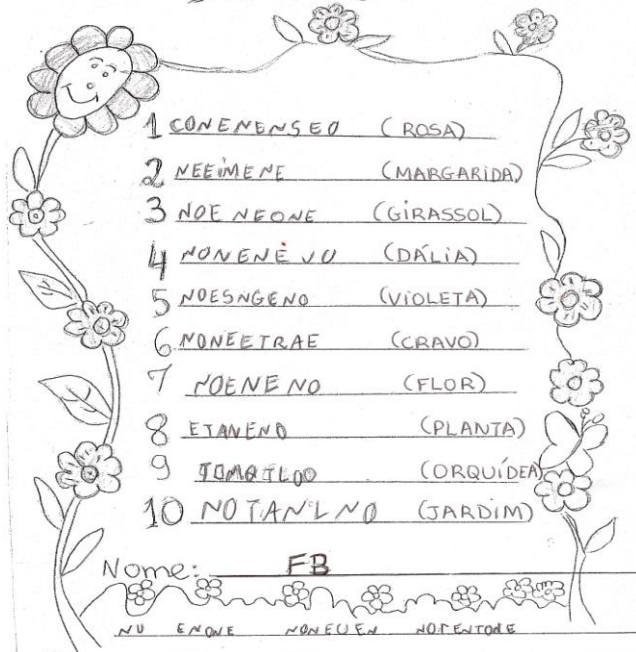 1 CONENENSEO (ROSA)
2 NEEIMENE (MARGARIDA)
3 NOE NEONE (GIRASSOL)
4 NONENÉVO (DÁLIA)
5 NOESNGENO (VIOLETA)
6 NONEETRAE (CRAVO)
7 NOENENO (FLOR)
8 ETANENO (PLANTA)
9 (ORQUÍDEA)
10 NOTANLNO (JARDIM)
Nome: FB
NU ENONE NONEUEN NOTENTONE